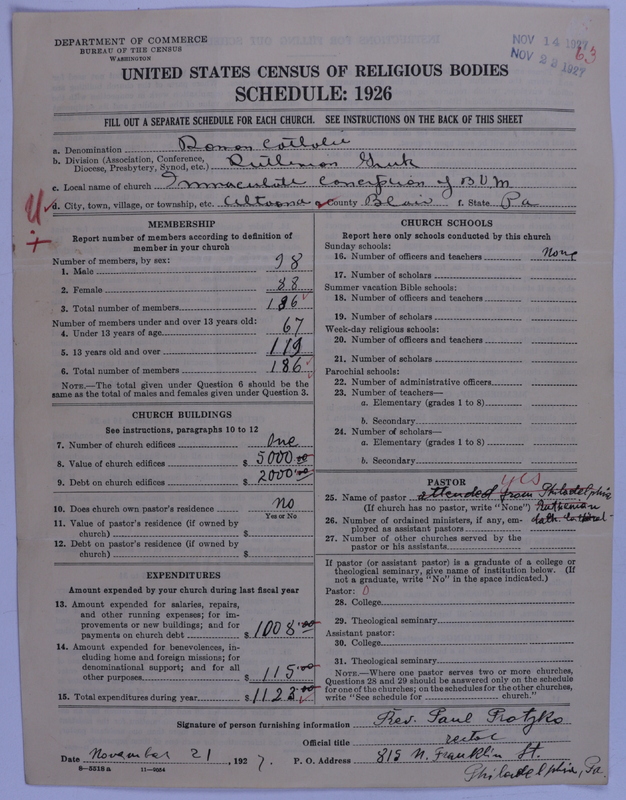 DEPARTMENT OF COMMERCE
BUREAU OF THE CENSUS
WASHINGTON
NOV 14 1927
NOV 23 1927
63
UNITED STATES CENSUS OF RELIGIOUS BODIES
SCHEDULE: 1926
FILL OUT A SEPARATE SCHEDULE FOR EACH CHURCH. SEE INSTRUCTIONS ON THE BACK OF THIS SHEET
a. Denomination Roman Catholic
b. Division (Association, Conference, Diocese, Presbytery, Synod, etc.) Ruthenian Greek
c. Local name of church Immaculate Conception of B V M
d. City, town, village, or township, etc. Altoona e. County Blair f. State Pa.
MEMBERSHIP
Report number of members according to definition of
member in your church
Number of members, by sex:
1. Male 98
2. Female 88
3. Total number of members 186
Number of members under and over 13 years old:
4. Under 13 years of age 67
5. 13 years old and over 119
6. Total number of members 186
NOTE.—The total given under Question 6 should be the
same as the total of males and females given under Question 3.
CHURCH BUILDINGS
See instructions, paragraphs 10 to 12
7. Number of church edifices One
8. Value of church edifices $ 5000.00
9. Debt on church edifices $ 2000.00
10. Does church own pastor's residence? No
Yes or No
11. Value of pastor's residence (if owned by
church) $
12. Debt on pastor's residence (if owned by
church) $
EXPENDITURES
Amount expended by your church during last fiscal year
13. Amount expended for salaries, repairs,
and other running expenses; for im-
provements or new buildings; and for
payments on church debt $ 1008.00
14. Amount expended for benevolences, in-
cluding home and foreign missions; for
denominational support; and for all
other purposes $ 115.00
15. Total expenditures during year $ 1123.00
CHURCH SCHOOLS
Report here only schools conducted by this church
Sunday schools:
16. Number of officers and teachers None
17. Number of scholars
Summer vacation Bible schools:
18. Number of officers and teachers
19. Number of scholars
Week-day religious schools:
20. Number of officers and teachers
21. Number of scholars
Parochial schools:
22. Number of administrative officers
23. Number of teachers—
a. Elementary (grades 1 to 8)
b. Secondary
24. Number of scholars—
a. Elementary (grades 1 to 8)
b. Secondary
PASTOR
yes
25. Name of pastor attended from Philadelphia
(If church has no pastor, write "None") Ruthenian
26. Number of ordained ministers, if any, em-
ployed as assistant pastors
27. Number of other churches served by the
pastor or his assistants
If pastor (or assistant pastor) is a graduate of a college or
theological seminary, give name of institution below. (If
not a graduate, write "No" in the space indicated.)
Pastor: 0
28. College
29. Theological seminary
Assistant pastor:
30. College
31. Theological seminary
NOTE.—Where one pastor serves two or more churches,
Questions 28 and 29 should be answered only on the schedule
for one of the churches; on the schedules for the other churches,
write "See schedule for church."
Signature of person furnishing information Rev. Paul Protzko
Official title rector
Date November 21, 1927. P. O. Address 815 N. Franklin St.
8—5518a 11—9664
Philadelphia, Pa.